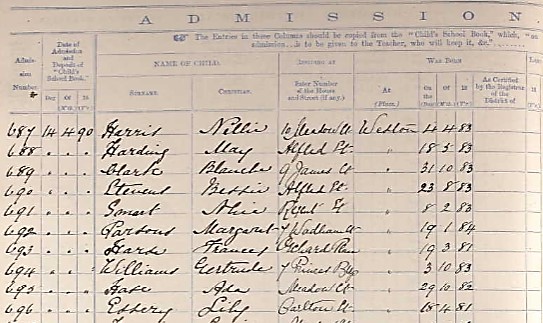 ADMISSION
The Entries in these Columns should be copied from the "Child's School Book," which, "on
admission... is to be given to the Teacher, who will keep it, &c."
Admission Number Date of Admission and Deposit of "Child's School Book." NAME OF CHILD. RESIDING AT WAS BORN As Certified by the Registrar of the District of
Day Of 18 SURNAME. CHRISTIAN. Enter Number of the House and Street (if any). At (Place.) On the (Day) Of 18
687 14 4 90 Harris Nellie 10 Meadow St Weston 4 4 83
688 " " " Harding May Alfred St " 18 5 83
689 " " " Clark Blanche 9 James St " 31 10 83
690 " " " Stevens Bessie Alfred St " 23 8 83
691 " " " Smart Alice Regent St " 8 2 83
692 " " " Parsons Margaret 7 Wadham St " 19 1 84
693 " " " Frances Orchard " 19 3 81
694 " " " Williams Gertrude 7 Princes " 3 10 83
695 " " " Ada Meadow St " 29 10 82
696 " " " Essery Lily Carlton St " 18 4 81